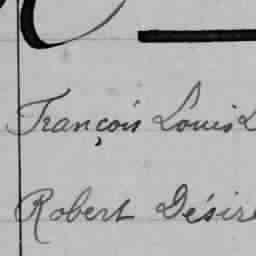 François Louis
Robert Désiré